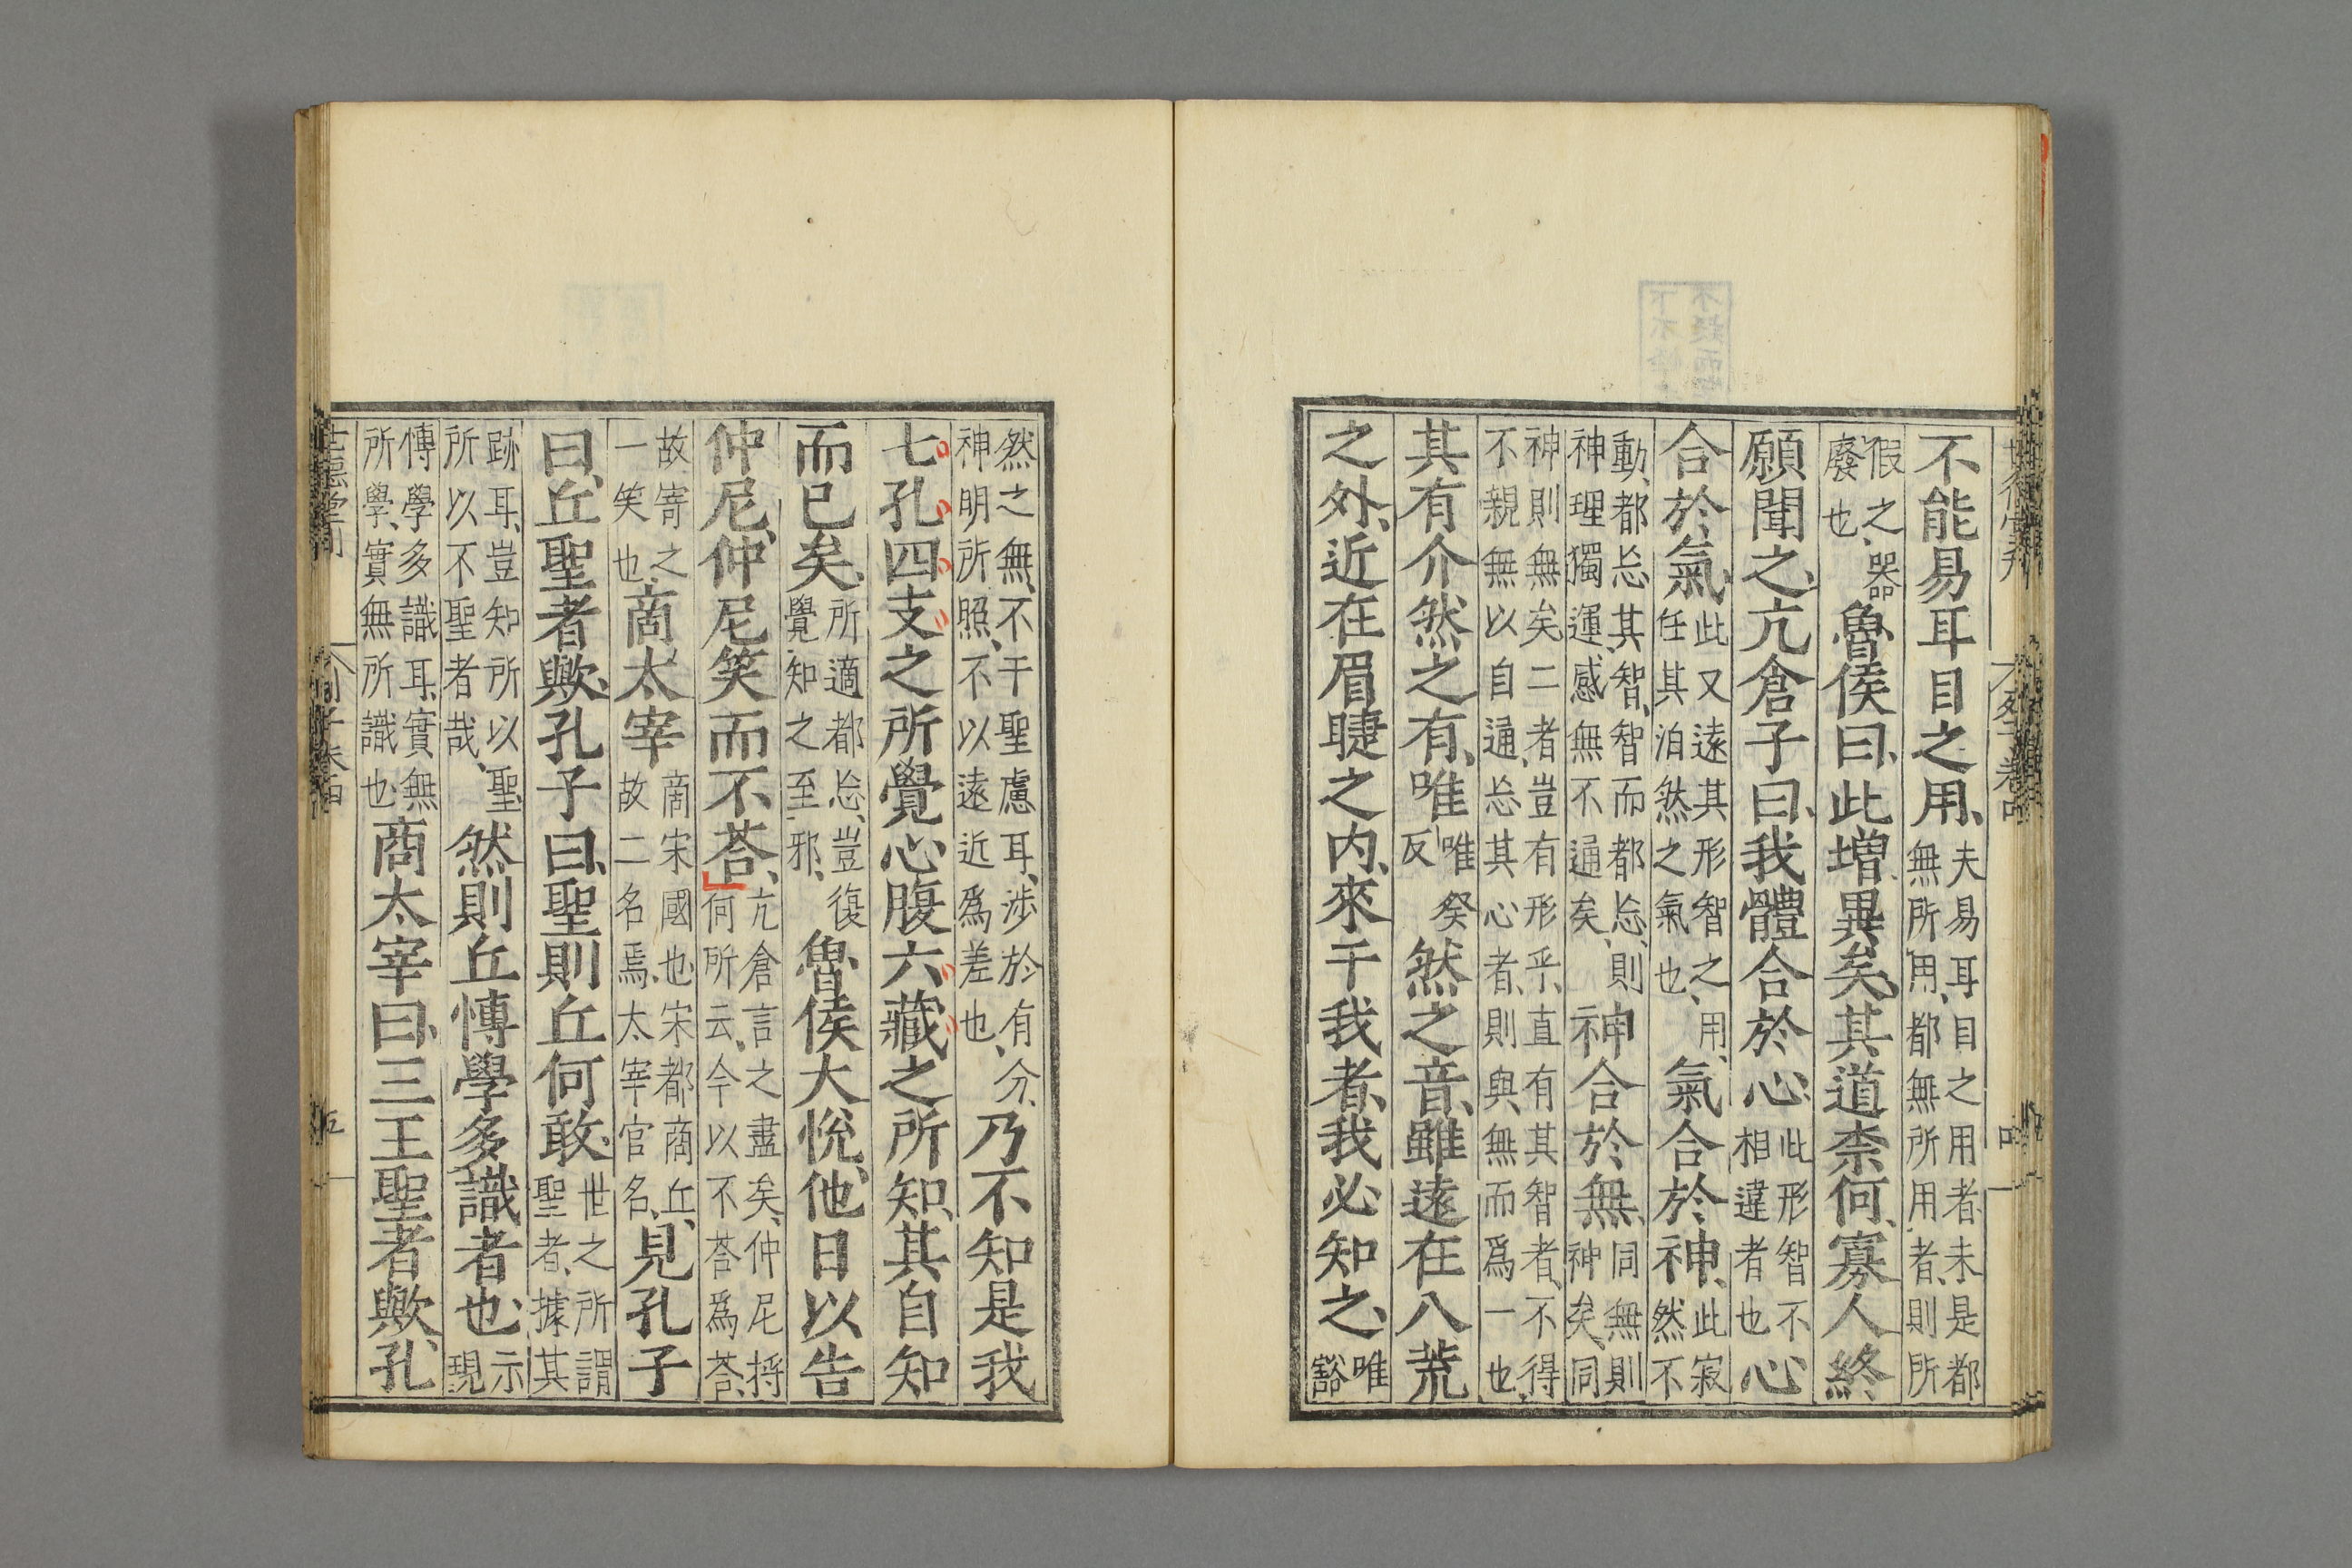 不能易耳目之用、夫易耳目之用者、未是都無所用、都無所用者、則所
假之器、廢也、魯侯曰、此增異矣、其道柰何、寡人終
願聞之、亢倉子曰、我體合於心、此形智不相違者也心
合於氣、此又遠其形智之用、任其泊然之氣也、氣合於神、此寂然不
動、都忘其智、智而都忘、則神理獨運、感無不通矣、神合於無、同無則神矣、同
神則無矣、二者、豈有形乎、直有其智者、不得不親無以自通、忘其心者、則與無而爲一也、
其有介然之有、唯唯癸反然之音、雖遠在八荒
之外、近在眉睫之内、來干我者、我必知之、唯豁
然之無、不干聖慮耳、涉於有分、神明所照、不以遠近爲差也、乃不知是我
七孔四支之所覺心腹六藏之所知、其自知
而已矣、所適都忘、豈復覺知之至邪、魯侯大悅、他日以告
仲尼、仲尼笑而不荅、亢倉言之盡矣、仲尼將何所云、今以不荅爲荅、
故寄之一笑也、商太宰商宋國也宋都商丘、故二名焉、太宰官名、見孔子
曰、丘聖者歟、孔子曰、聖則丘何敢、世之所謂聖者、據其
跡耳、豈知所以聖所以不聖者哉、然則丘博學多識者也、示現
博學多識耳、實無所學、實無所識也商太宰曰、三王聖者歟、孔
五